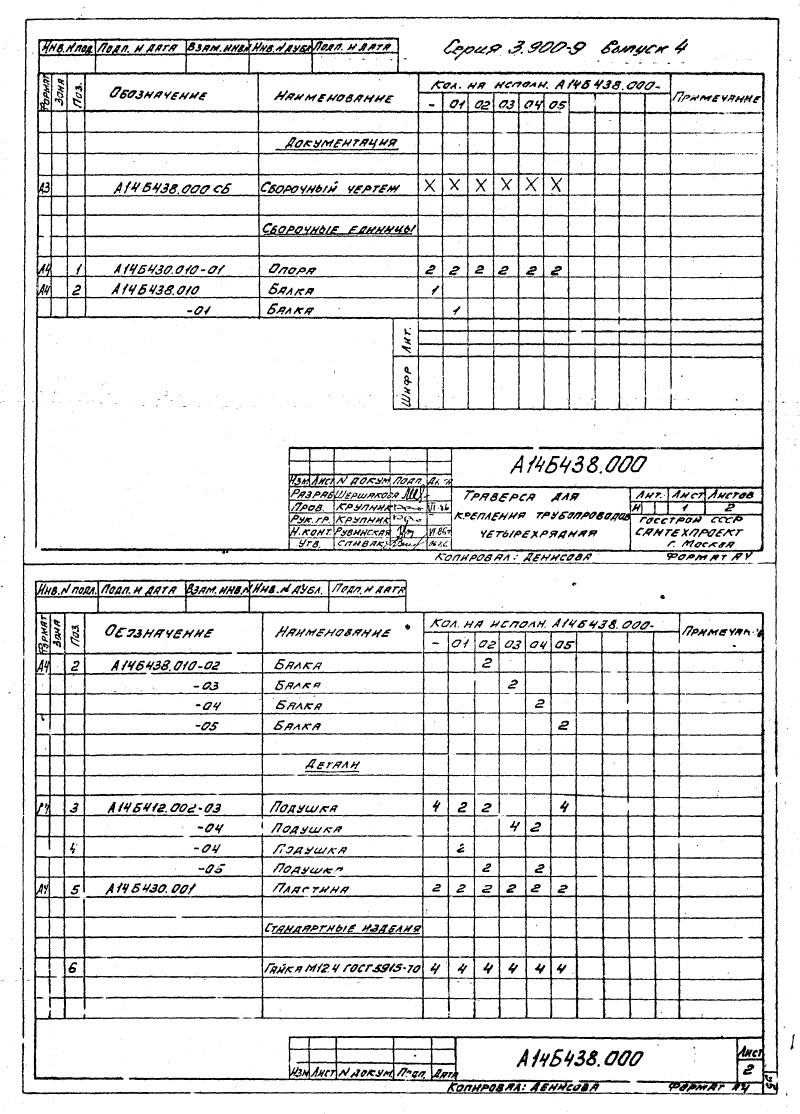 Инв. № под. Подп. и дата Взам. инв. № Инв. № дубл. Подп. и дата
Серия 3.900-9 Выпуск 4
Формат Зона Поз. Обозначение Наименование Кол. на исполн. А14Б438.000- Примечание
- 01 02 03 04 05
Документация
А3 А14Б438.000 СБ Сборочный чертеж X X X X X X
Сборочные единицы
А4 1 А14Б430.010-01 Опора 2 2 2 2 2 2
А4 2 А14Б438.010 Балка 1
-01 Балка 1
Лит.
Шифр
А14Б438.000
Изм. Лист № докум. Подп. Дата
Разраб. Шершакова
Пров. Крупник VI-86
Рук. гр. Крупник
Н. конт. Рувинская VI.86г
Утв. Спивак
Траверса для
крепления трубопроводов
четырехрядная
Лит. Лист Листов
И 1 2
Госстрой СССР
Сантехпроект
г. Москва
Копировал: Денисова Формат А4
Инв. № подл. Подп. и дата Взам. инв. № Инв. № дубл. Подп. и дата
Формат Зона Поз. Обозначение Наименование Кол. на исполн. А14Б438.000- Примечан.
- 01 02 03 04 05
А4 2 А14Б438.010-02 Балка 2
-03 Балка 2
-04 Балка 2
-05 Балка 2
Детали
А4 3 А14Б412.002-03 Подушка 4 2 2 4
-04 Подушка 4 2
4 -04 Подушка 2
-05 Подушка 2 2
А4 5 А14Б430.001 Пластина 2 2 2 2 2 2
Стандартные изделия
6 Гайка М12.4 ГОСТ 5915-70 4 4 4 4 4 4
Изм. Лист № докум. Подп. Дата
А14Б438.000
Лист
2
Копировал: Денисова Формат А4